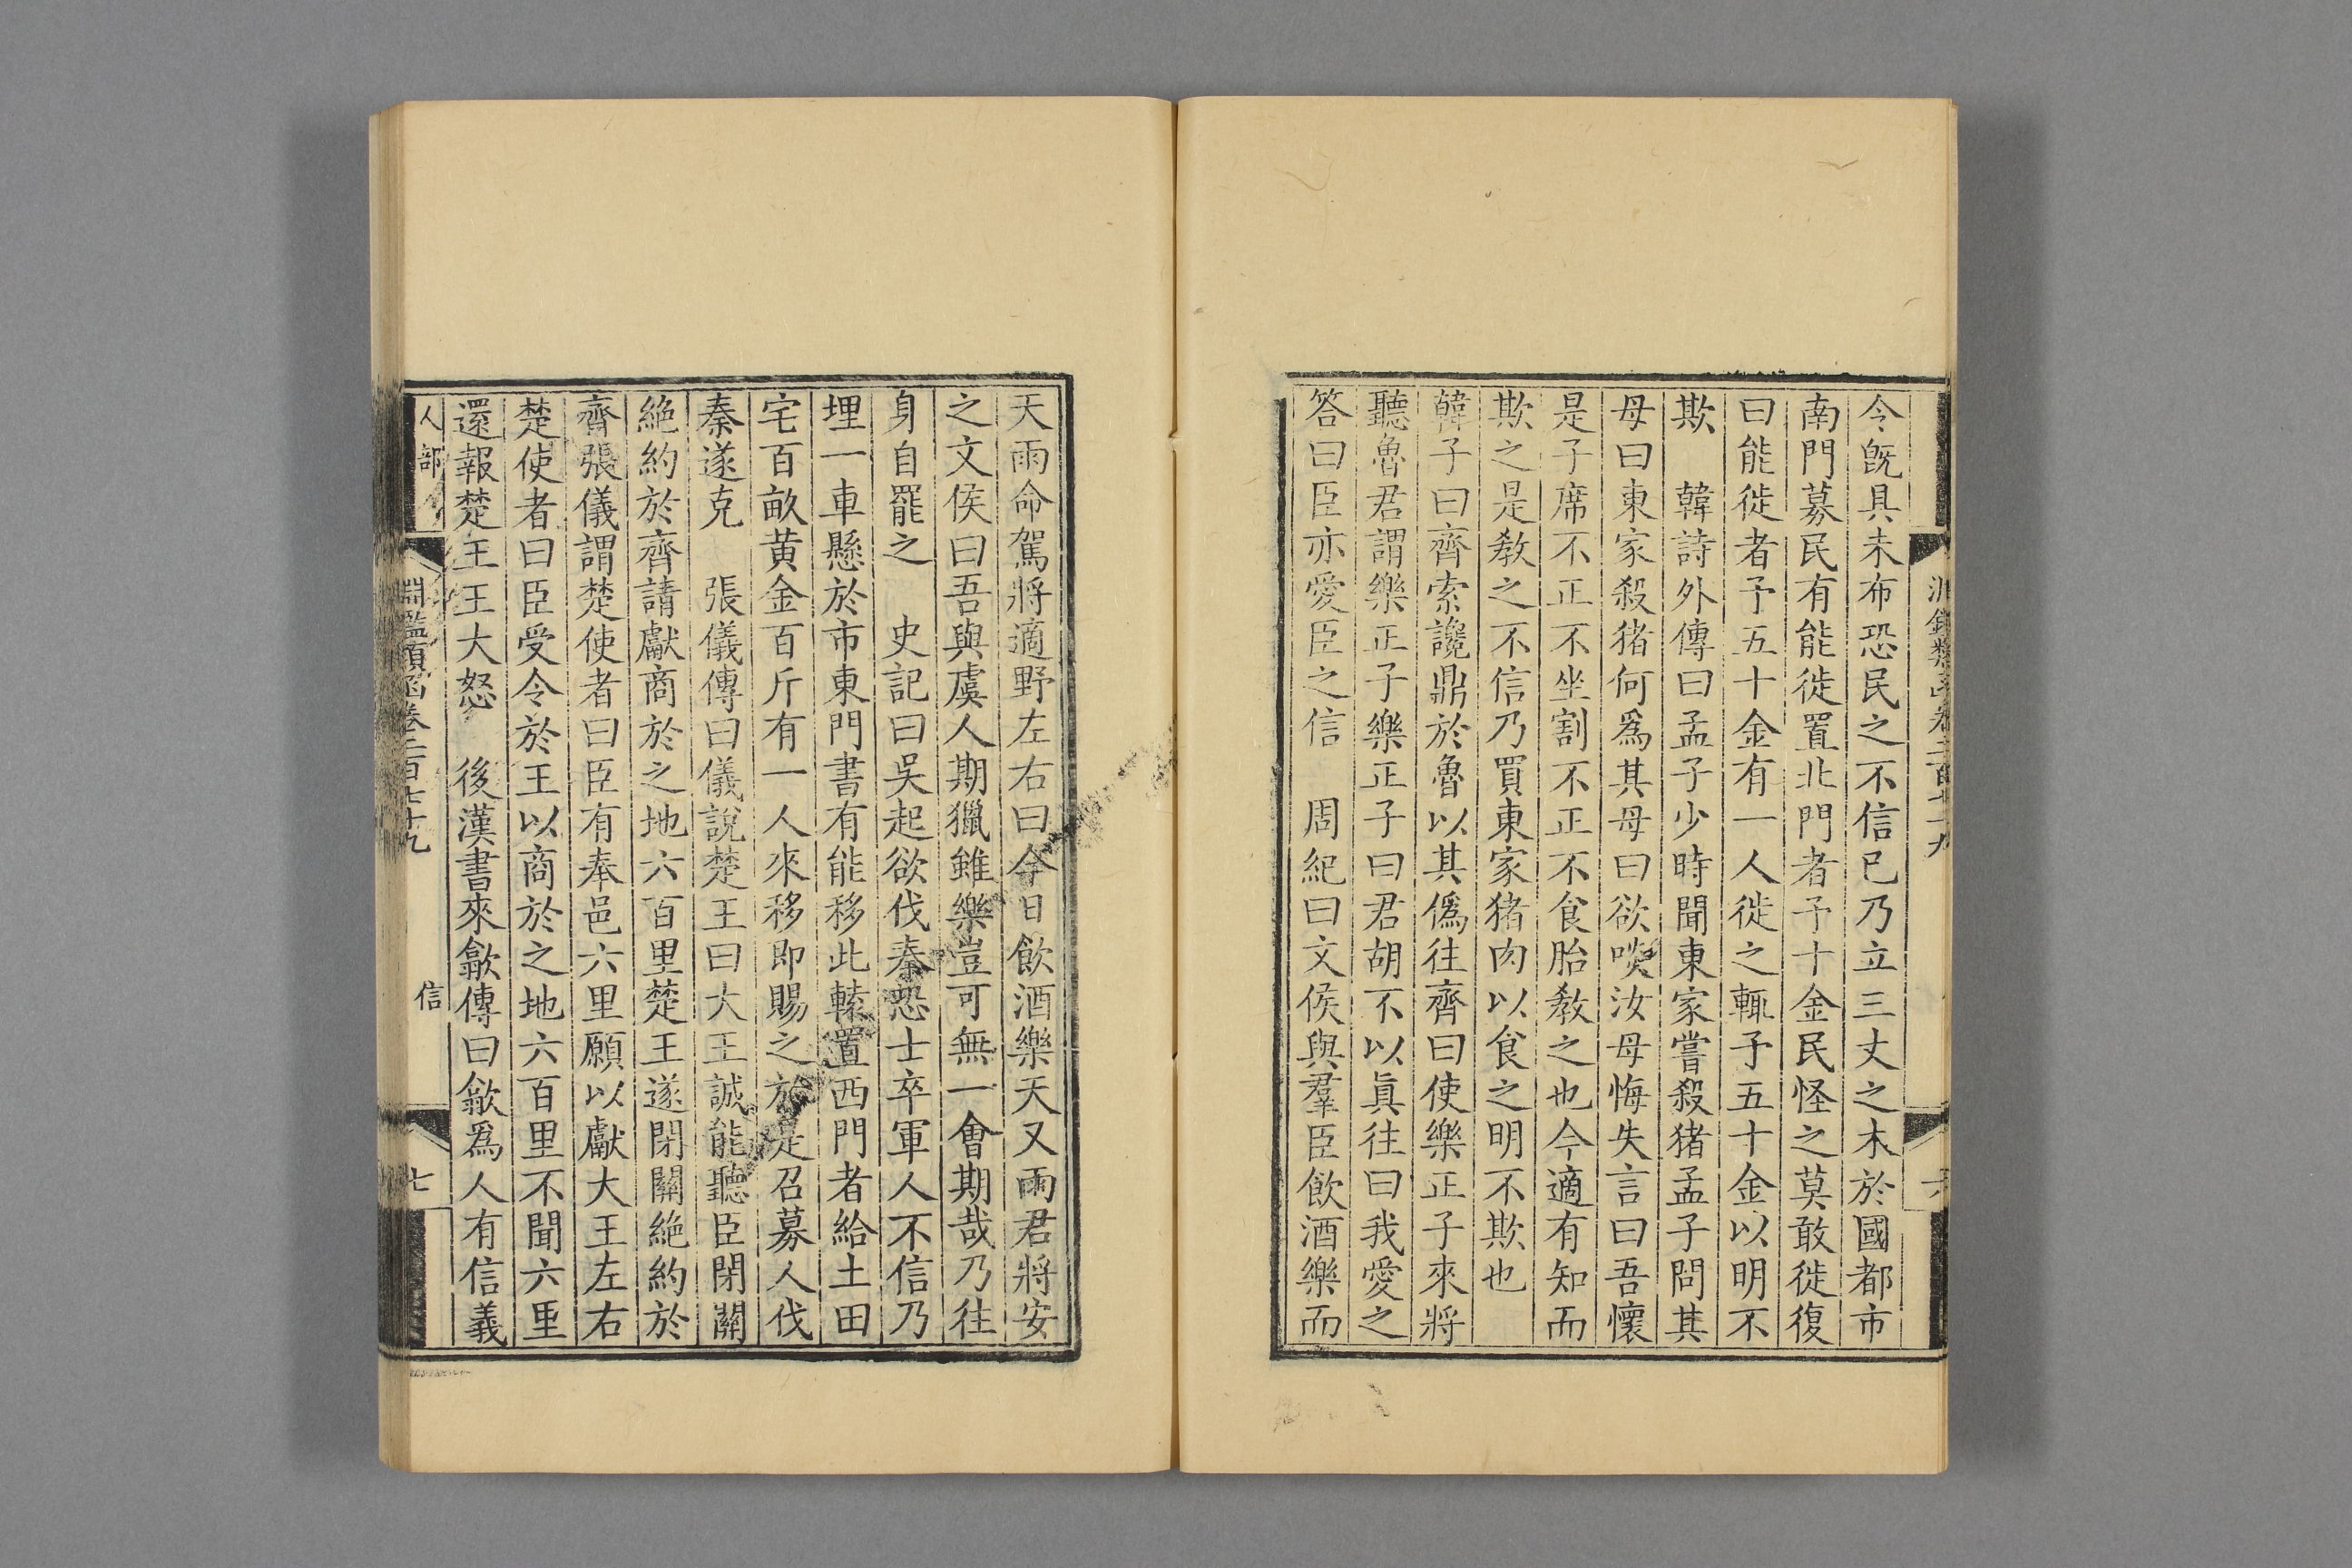 令旣具未布恐民之不信已乃立三丈之木於國都市
南門募民有能徙置北門者予十金民怪之莫敢徙復
曰能徙者予五十金有一人徙之輒予五十金以明不
欺　韓詩外傳曰孟子少時聞東家嘗殺猪孟子問其
母曰東家殺猪何爲其母曰欲啖汝母悔失言曰吾懷
是子席不正不坐割不正不食胎敎之也今適有知而
欺之是敎之不信乃買東家猪肉以食之明不欺也
韓子曰齊索讒鼎於魯以其僞往齊曰使樂正子來將
聽魯君謂樂正子樂正子曰君胡不以眞往曰我愛之
答曰臣亦愛臣之信　周紀曰文侯與羣臣飲酒樂而
天雨命駕將適野左右曰今日飲酒樂天又雨君將安
之文侯曰吾與虞人期獵雖樂豈可無一會期哉乃往
身自罷之　史記曰吳起欲伐秦恐士卒軍人不信乃
埋一車懸於市東門書有能移此轅置西門者給土田
宅百畝黃金百斤有一人來移即賜之於是召募人伐
秦遂克　張儀傳曰儀說楚王曰大王誠能聽臣閉關
絕約於齊請獻商於之地六百里楚王遂閉關絕約於
齊張儀謂楚使者曰臣有奉邑六里願以獻大王左右
楚使者曰臣受令於王以商於之地六百里不聞六里
還報楚王王大怒　後漢書來歙傳曰歙爲人有信義
人部
淵鑑類函卷二百七十九
信
七